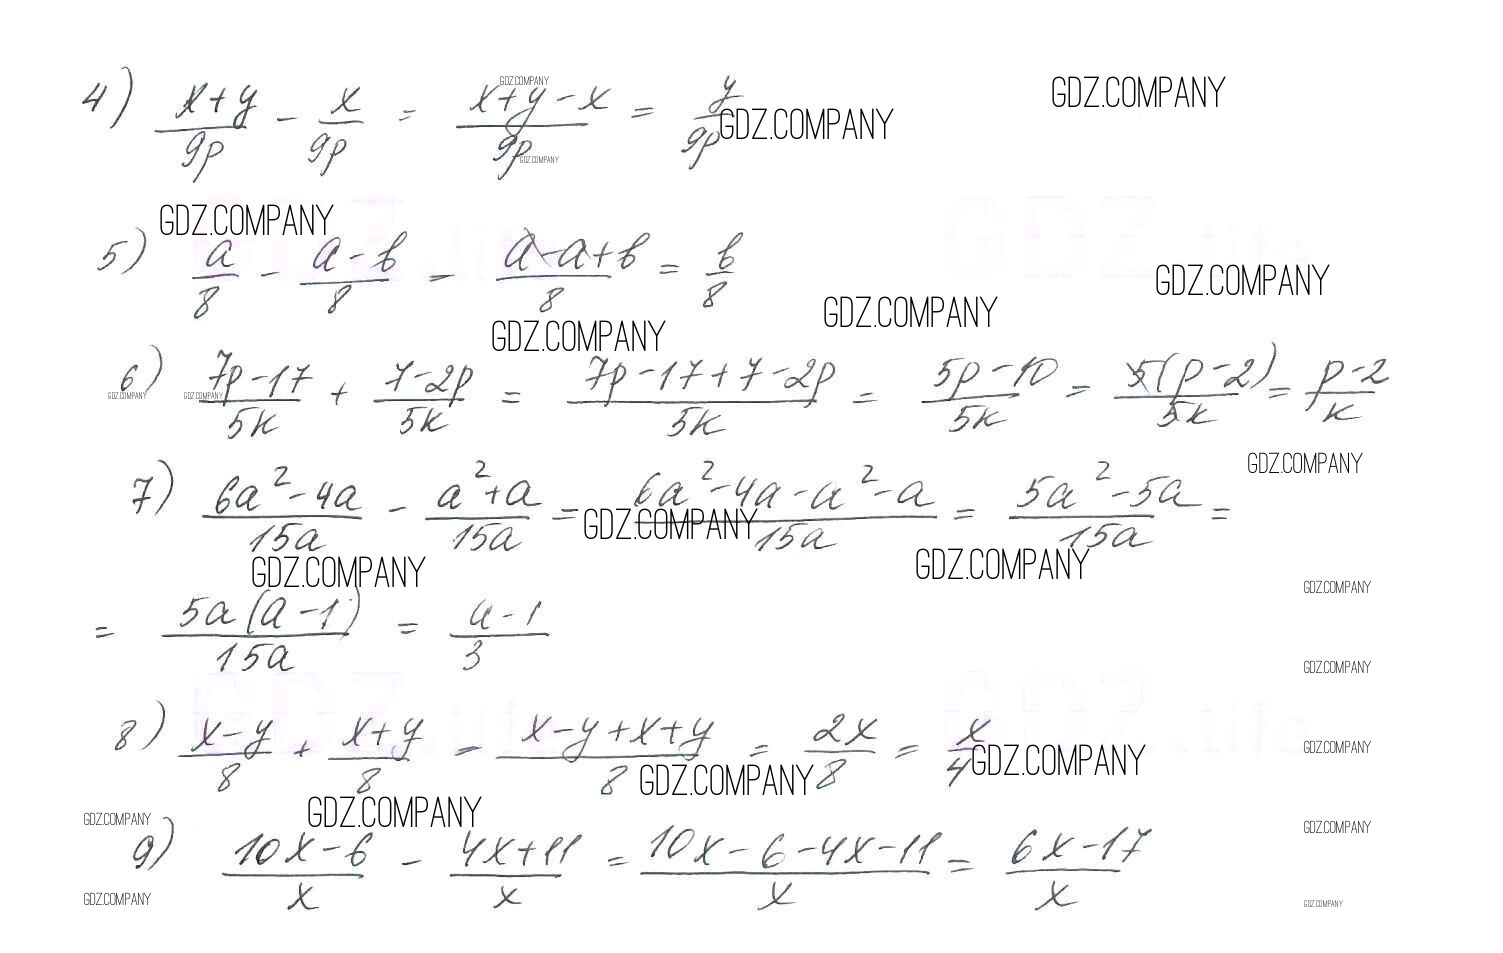 GDZ.COMPANY
GDZ.COMPANY
4) (x+y)/9p - x/9p = (x+y-x)/9p = y/9p GDZ.COMPANY
GDZ.COMPANY
GDZ.COMPANY
5) a/8 - (a-b)/8 = (a-a+b)/8 = b/8
GDZ.COMPANY
GDZ.COMPANY
GDZ.COMPANY
6) (7p-17)/5k + (7-2p)/5k = (7p-17+7-2p)/5k = (5p-10)/5k = 5(p-2)/5k = (p-2)/k
GDZ.COMPANY GDZ.COMPANY
GDZ.COMPANY
7) (6a²-4a)/15a - (a²+a)/15a = (6a²-4a-a²-a)/15a = (5a²-5a)/15a =
GDZ.COMPANY
GDZ.COMPANY GDZ.COMPANY
GDZ.COMPANY
= 5a(a-1)/15a = (a-1)/3
GDZ.COMPANY
8) (x-y)/8 + (x+y)/8 = (x-y+x+y)/8 = 2x/8 = x/4
GDZ.COMPANY GDZ.COMPANY
GDZ.COMPANY
GDZ.COMPANY GDZ.COMPANY GDZ.COMPANY
9) (10x-6)/x - (4x+11)/x = (10x-6-4x-11)/x = (6x-17)/x
GDZ.COMPANY GDZ.COMPANY